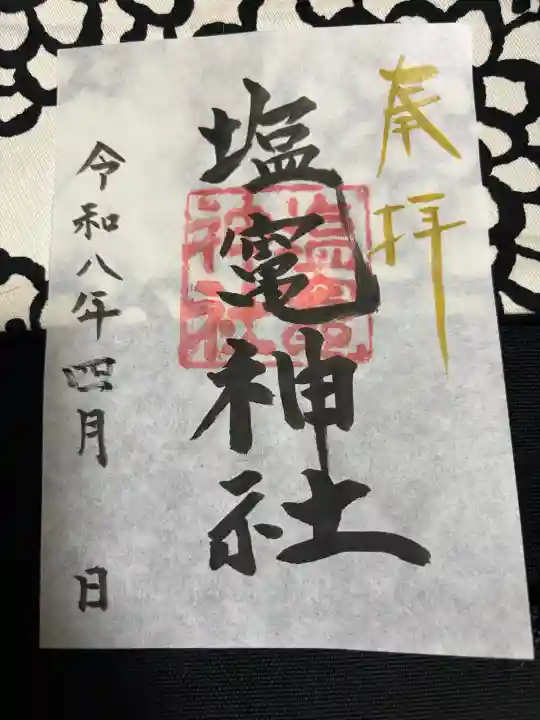 奉拝
塩竃神社
塩竃神社
令和八年四月 日